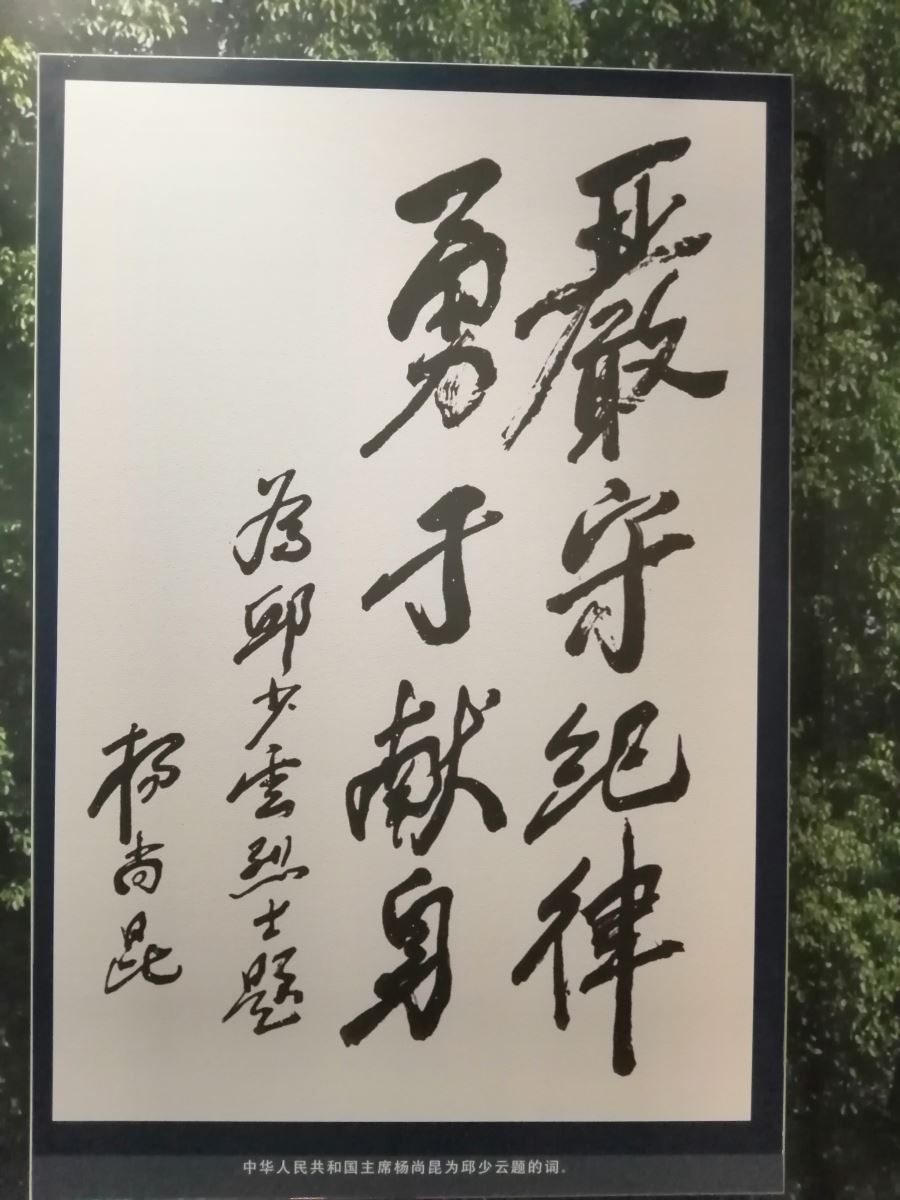 嚴守纪律
勇于献身
為邱少雲烈士题
杨尚昆
中华人民共和国主席杨尚昆为邱少云题的词。